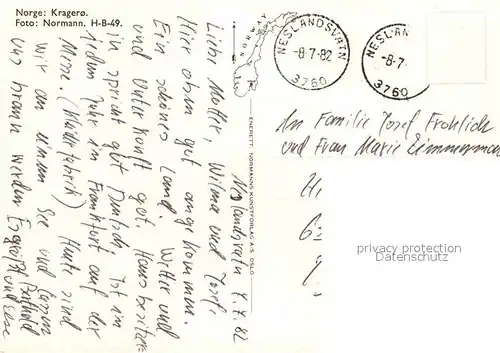 Norge: Kragerø.
Foto: Normann. H-B-49.
Neslandsvatn 7.7.82
Liebe Mutter Wilma und Josef
Hier oben gut angekommen.
Ein schönes Land. Wetter und
und Unterkunft gut. Hausbesitzer
spricht gut Deutsch. Ist im
jedem Jahr in Frankfurt auf der
Messe. Heute sind
wir an einem See und lassen
uns braun werden. Es grüßt
Berthold
und Else
ENERETT: NORMANNS KUNSTFORLAG A.S. OSLO
NESLANDSVATN
-8-7-82
3760
NESLAN
-8-7-
3760
An Familie Josef Fröhlich
und Frau Marie Zimmermann
privacy protection